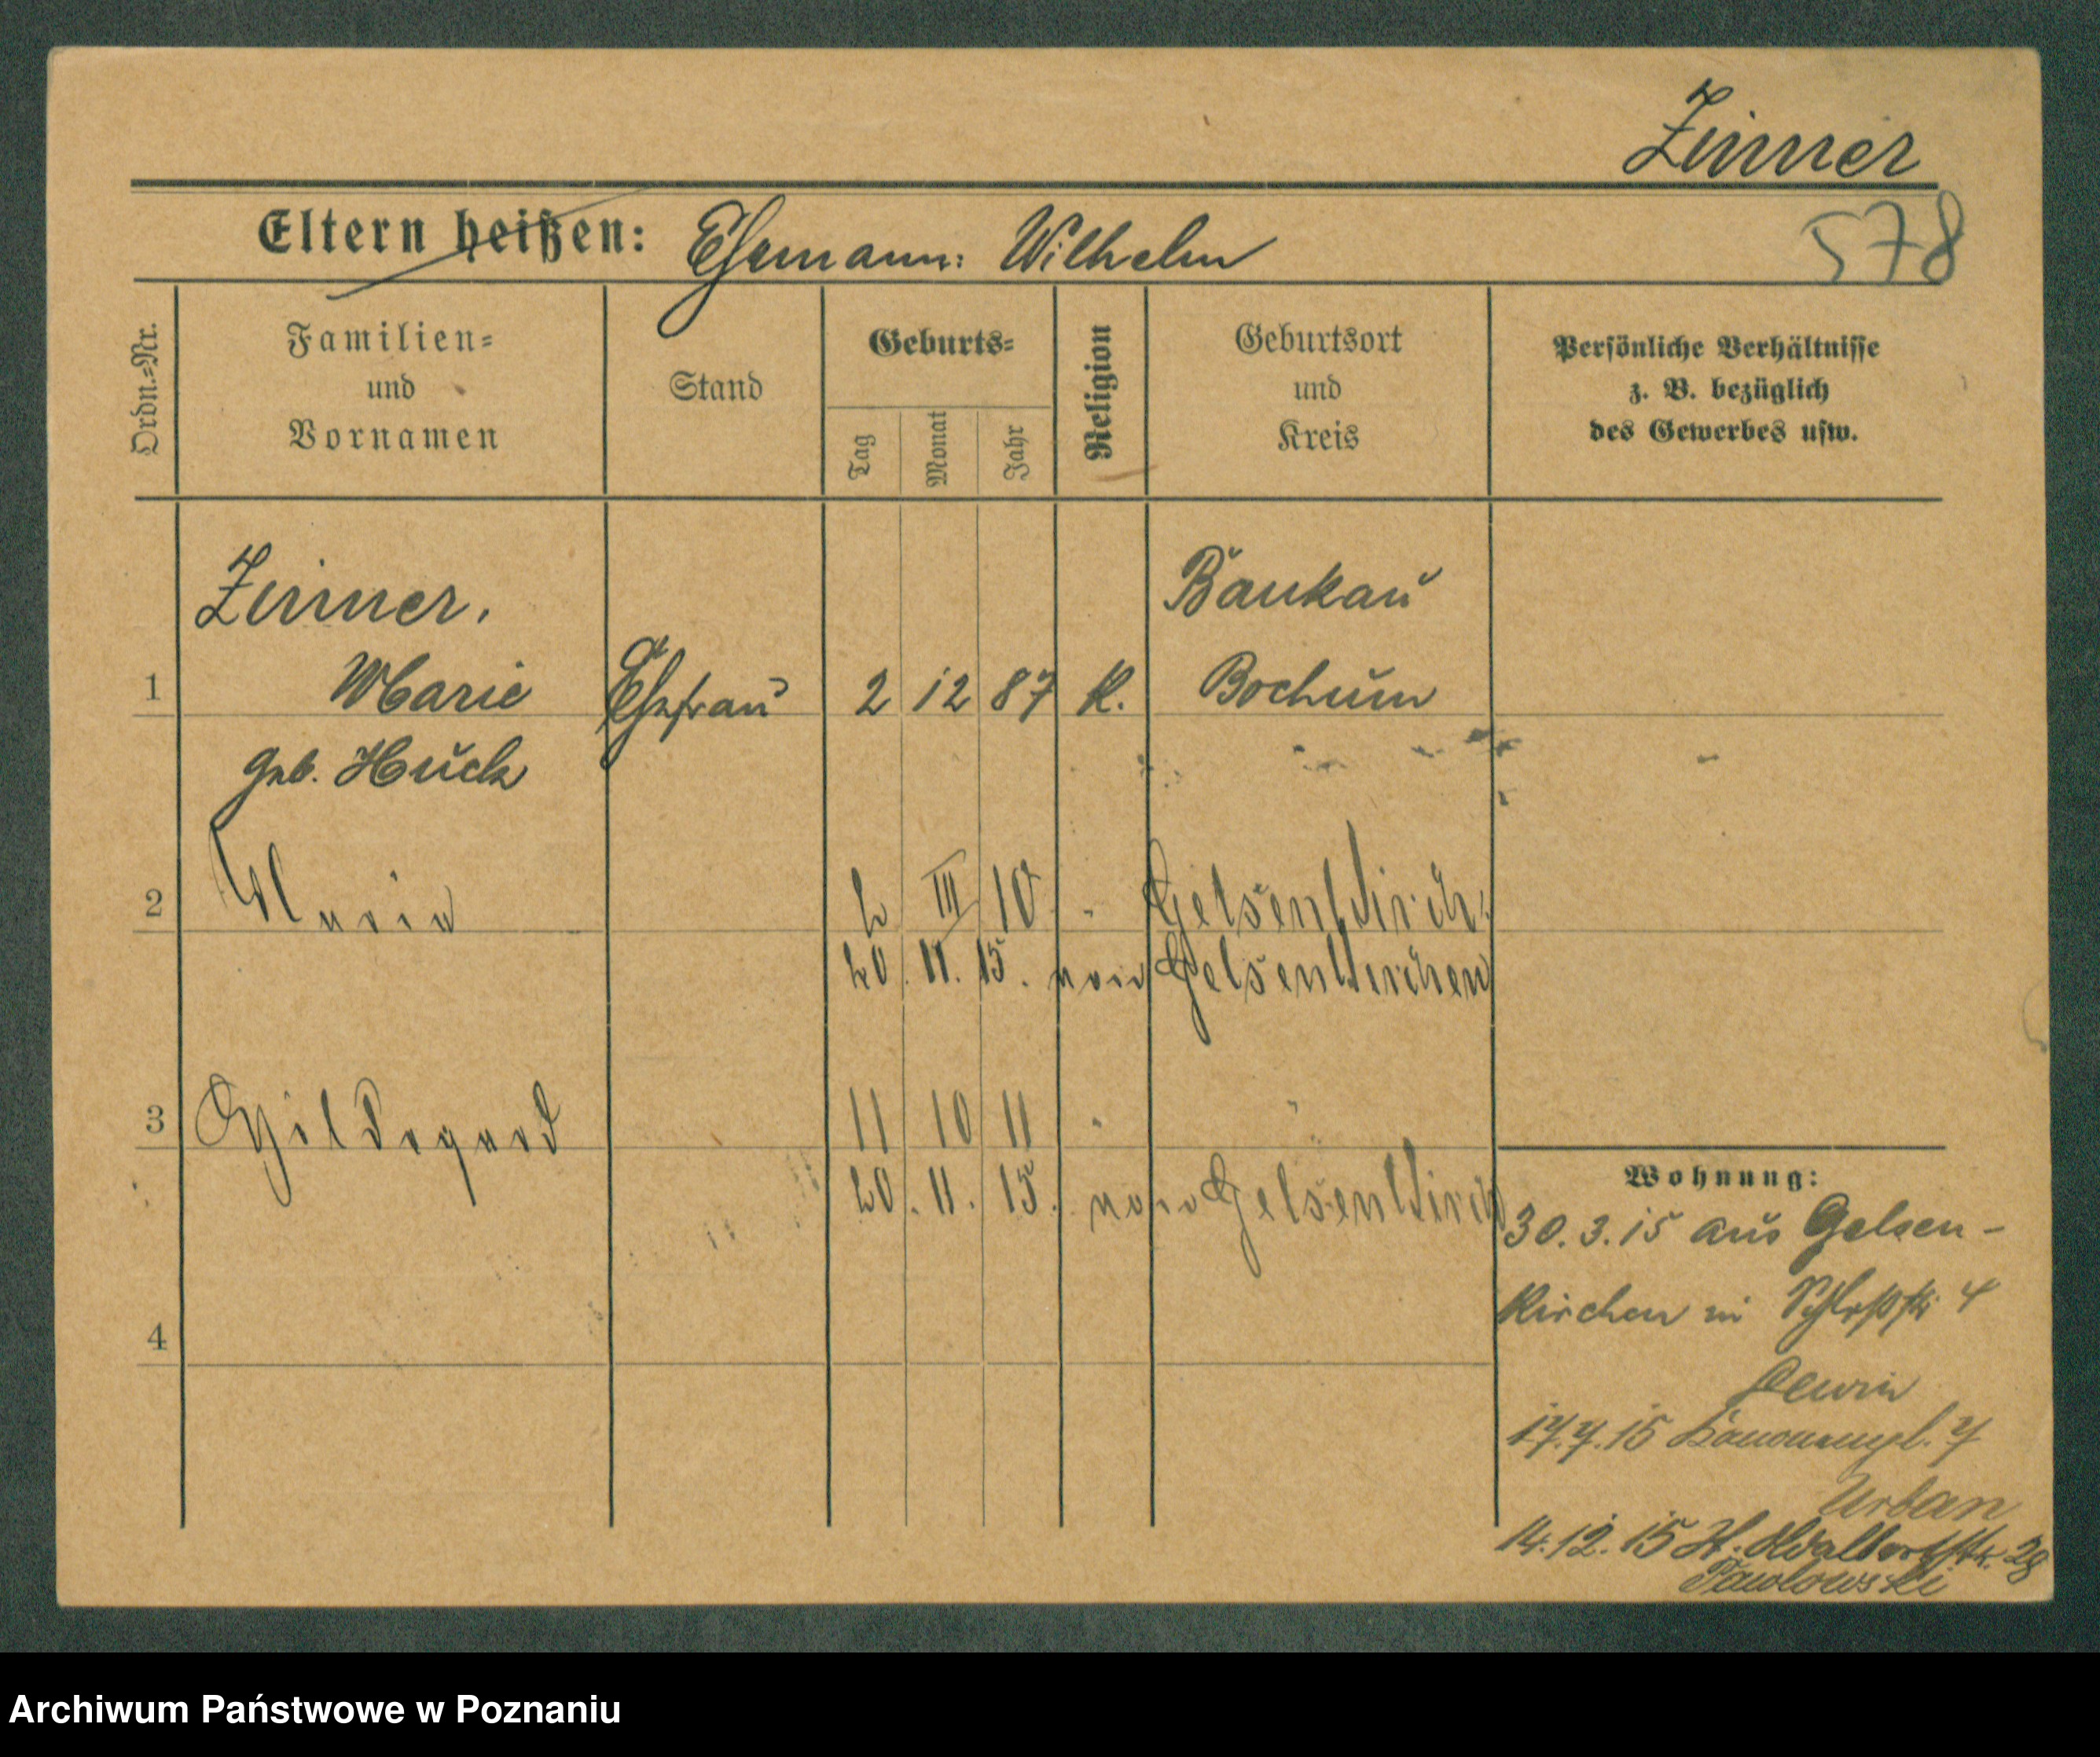 Zimmer
Eltern heißen: Ehemann: Wilhelm
578
Ordn.=Nr.
Familien=
und
Vornamen
Stand
Geburts=
Tag
Monat
Jahr
Religion
Geburtsort
und
Kreis
Persönliche Verhältnisse
z. B. bezüglich
des Gewerbes usw.
Zimmer.
Baukau
1 Marie Ehefrau 2 12 87 K. Bochum
geb. Huck
2 Maria 2 III 10 " Gelsenkirch.
20. 11. 15. von Gelsenkirchen
3 Hildegard 11 10 11 " "
20. 11. 15. von Gelsenkirch
Wohnung:
30.3.15 aus Gelsen-
kirchen in Schloßstr 4
4
Lewin
17.7.15 Kanonenpl. 7
Urban
14.12.15 St. Adalbertstr. 28
Pawlowski
Archiwum Państwowe w Poznaniu